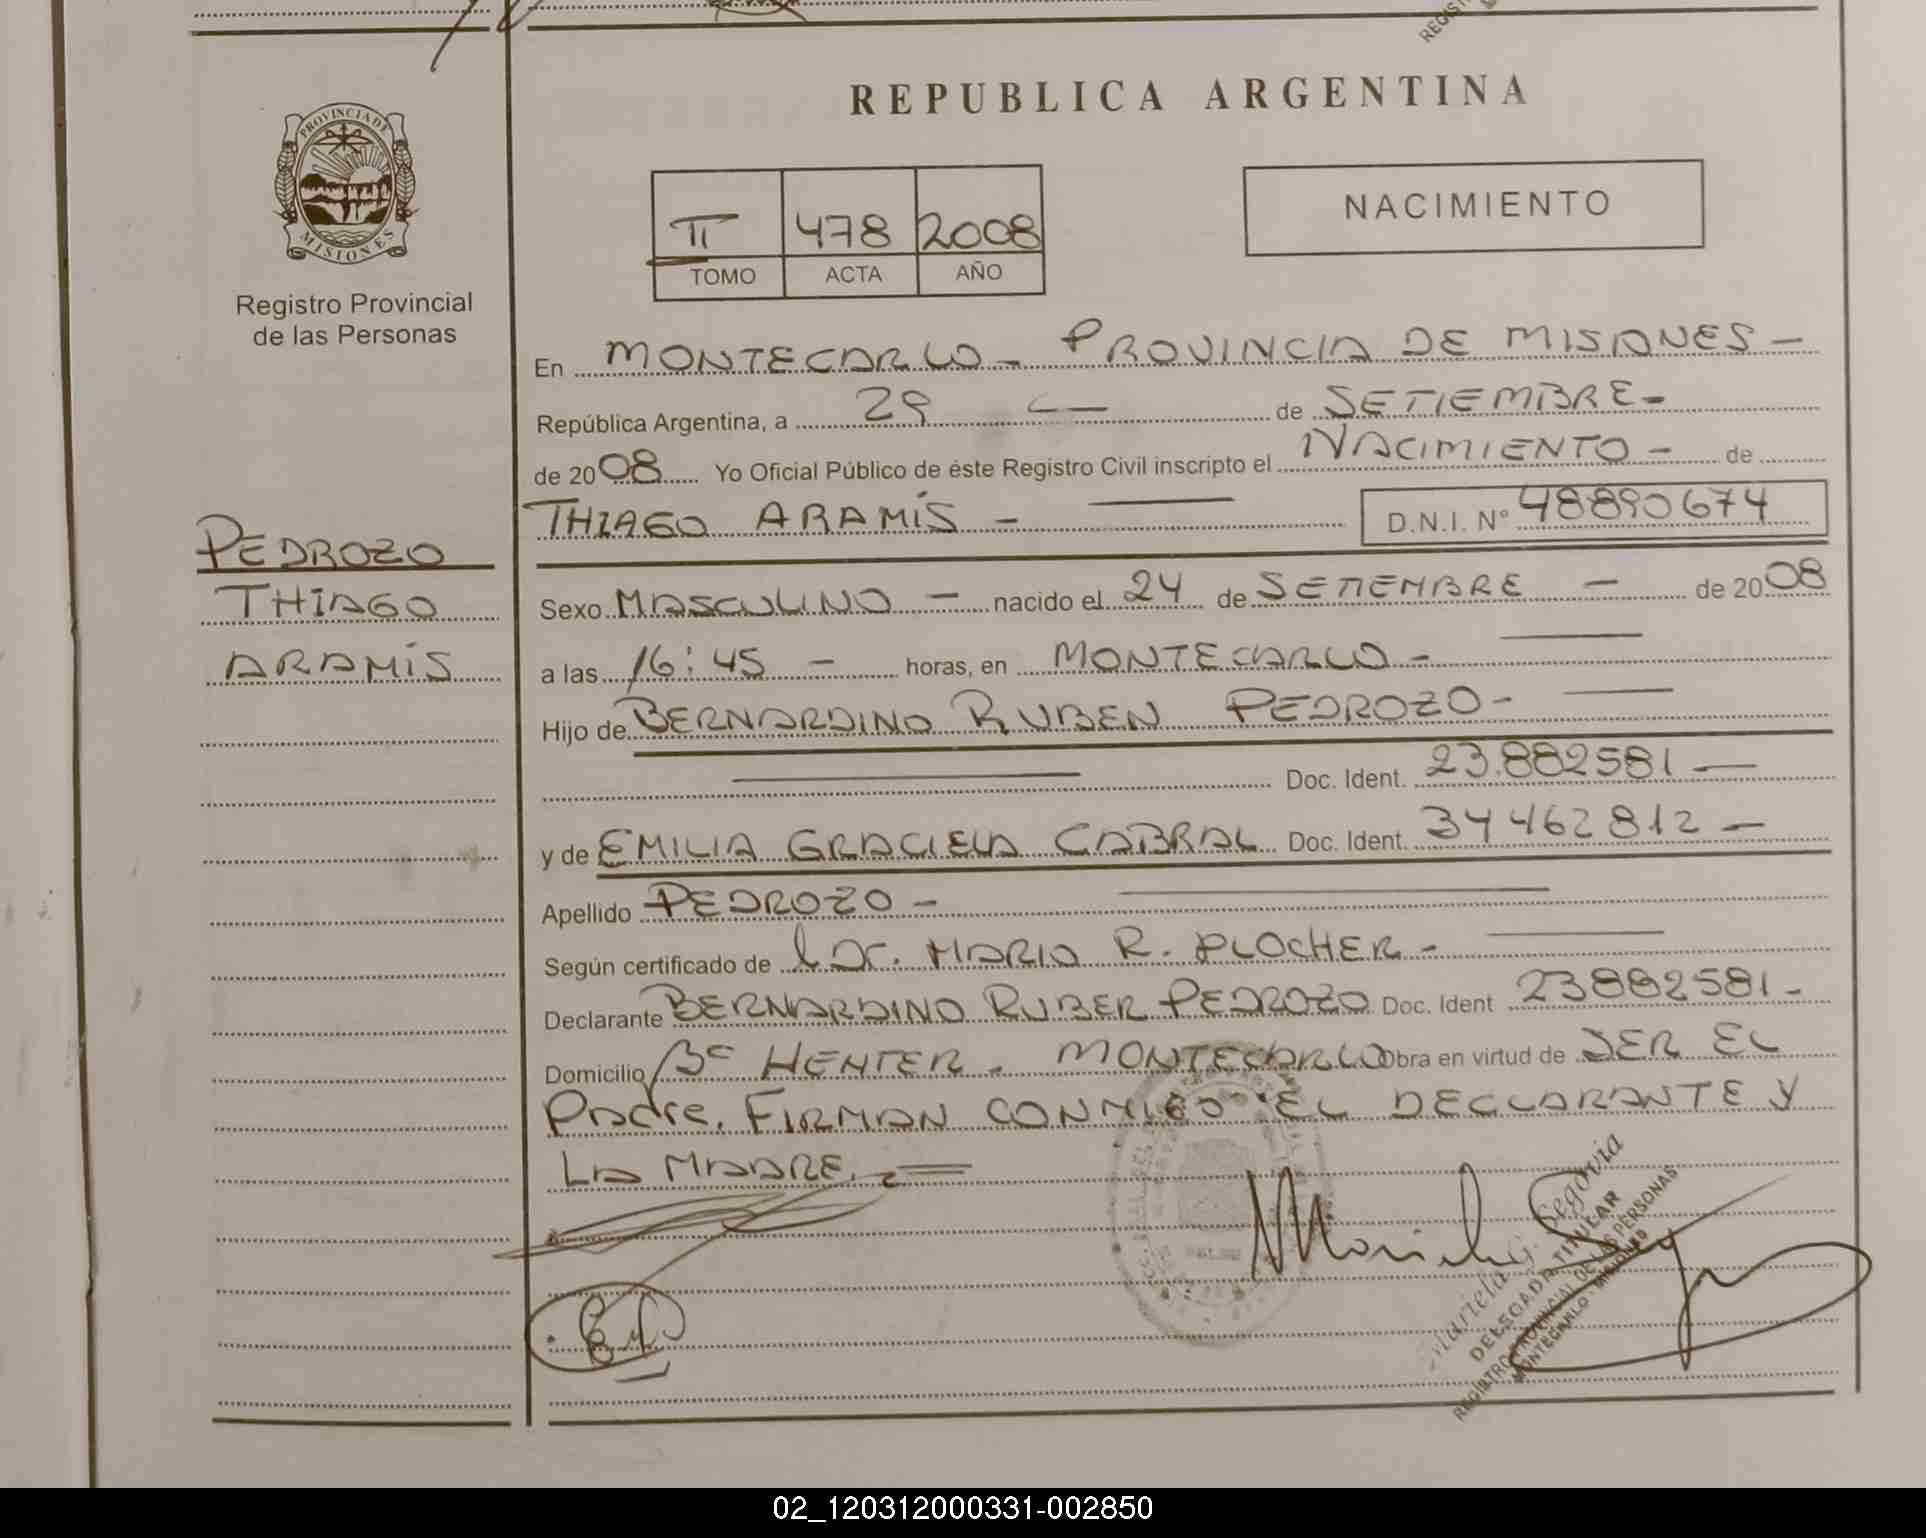 REGIST
REPUBLICA ARGENTINA
PROVINCIA DE
MISIONES
Registro Provincial
de las Personas
II 478 2008
TOMO ACTA AÑO
NACIMIENTO
En MONTECARLO - PROVINCIA DE MISIONES -
República Argentina, a 29 de SETIEMBRE -
de 2008 Yo Oficial Público de éste Registro Civil inscripto el NACIMIENTO - de
THIAGO ARAMÍS - D.N.I. Nº 48890674
PEDROZO
THIAGO
ARAMÍS
Sexo MASCULINO - nacido el 24 de SETIEMBRE - de 2008
a las 16:45 - horas, en MONTECARLO -
Hijo de BERNARDINO RUBEN PEDROZO -
Doc. Ident. 23.882581 -
y de EMILIA GRACIELA CABRAL Doc. Ident. 34462812 -
Apellido PEDROZO -
Según certificado de Dr. MARIO R. PLOCHER -
Declarante BERNARDINO RUBER PEDROZO Doc. Ident 23882581 -
Domicilio Bº HENTER - MONTECARLO Obra en virtud de SER EL
Padre. FIRMAN CONMIGO EL DECLARANTE Y
LA MADRE. =
Mariela G. Segovia
DELEGADA TITULAR
REGISTRO PROVINCIAL DE LAS PERSONAS
MONTECARLO - MISIONES
02_120312000331-002850